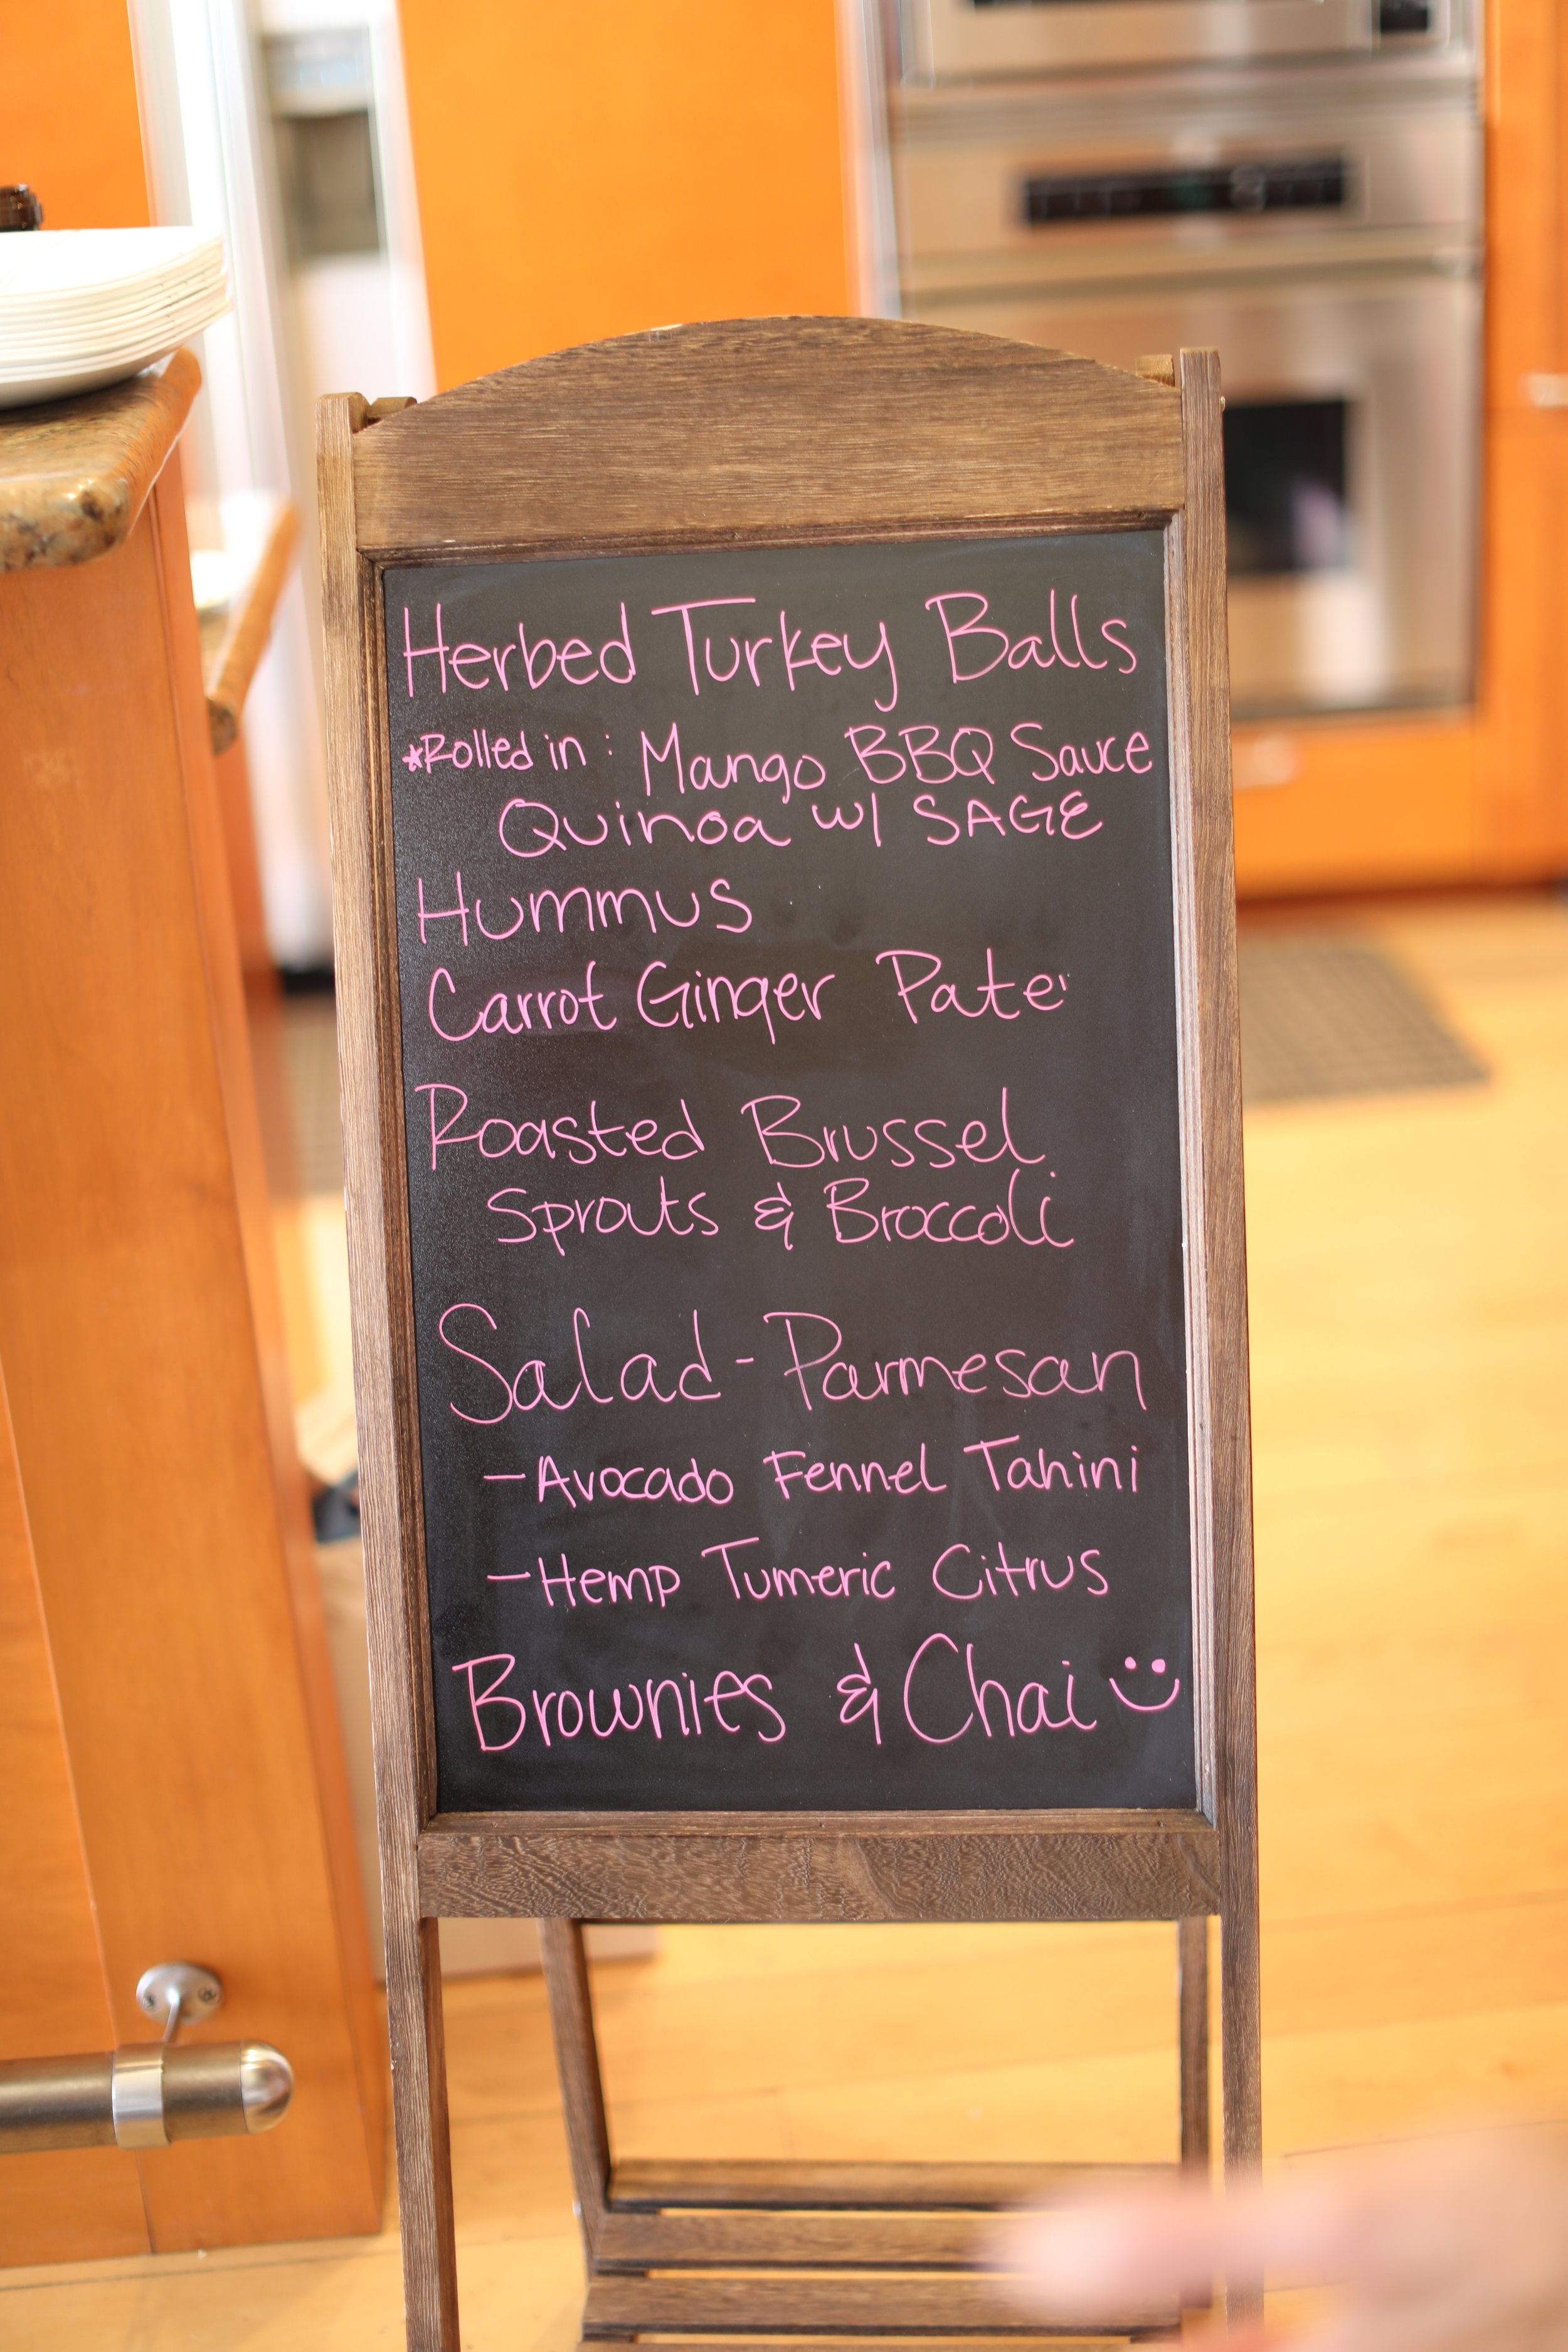 Herbed Turkey Balls
*Rolled in: Mango BBQ Sauce
Quinoa w/ SAGE
Hummus
Carrot Ginger Pate'
Roasted Brussel
Sprouts & Broccoli
Salad-Parmesan
-Avocado Fennel Tahini
-Hemp Tumeric Citrus
Brownies & Chai